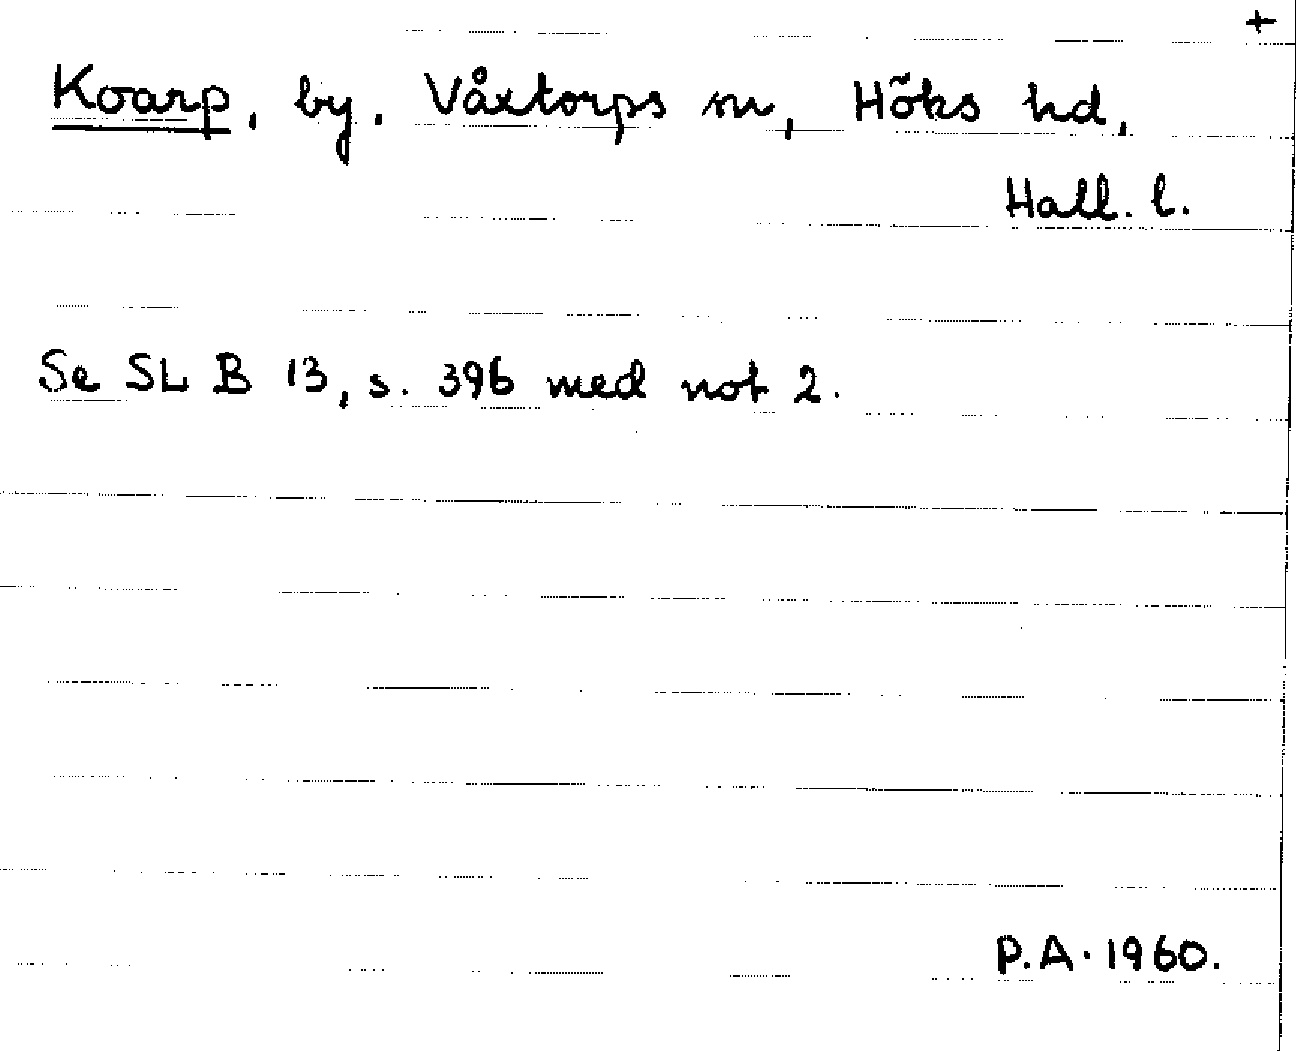 +
Koarp, by. Våxtorps sn, Höks hd,
Hall. l.
Se SL B 13, s. 396 med not 2.
P.A. 1960.